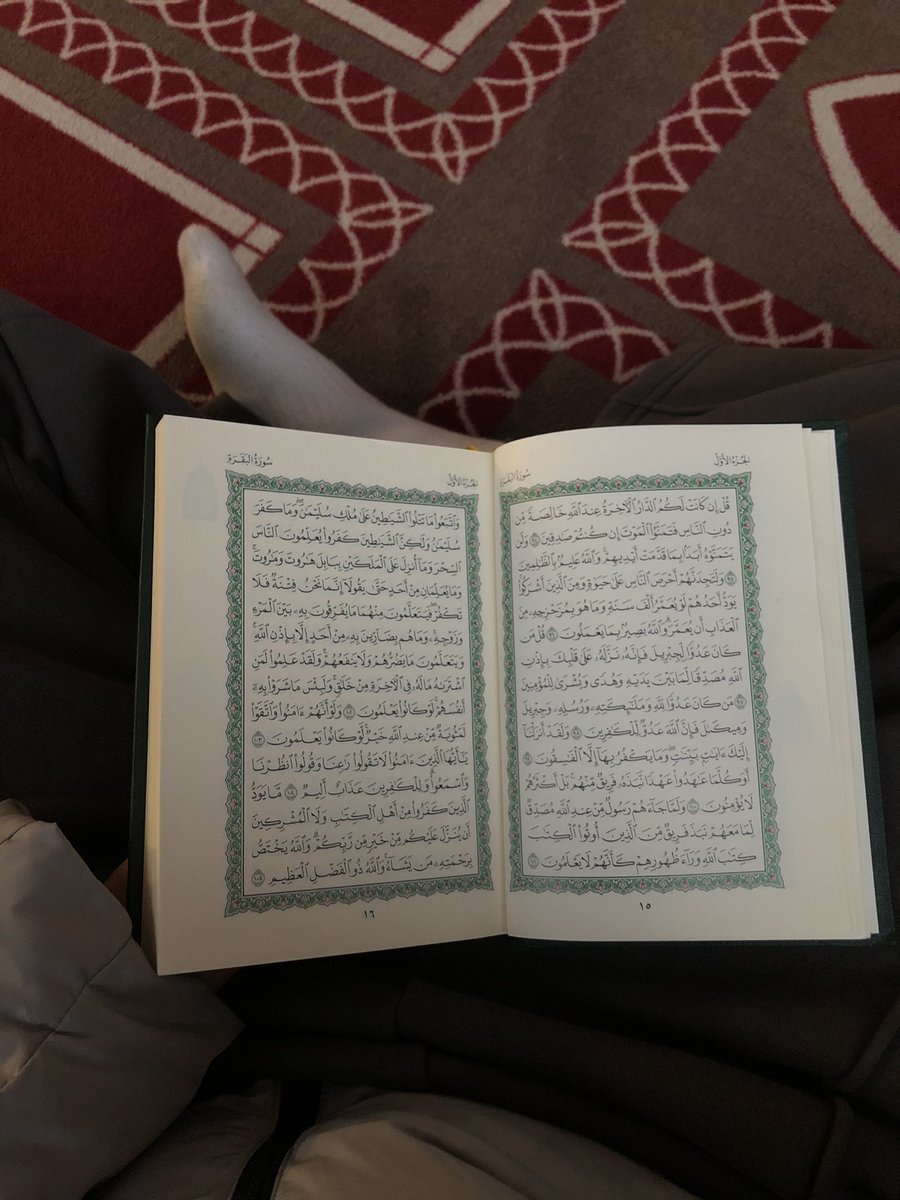 سُورَةُ البَقَرَةِ
الجُزءُ الأَوَّلُ
قُلْ إِن كَانَتْ لَكُمُ ٱلدَّارُ ٱلْءَاخِرَةُ عِندَ ٱللَّهِ خَالِصَةً مِّن
دُونِ ٱلنَّاسِ فَتَمَنَّوُا۟ ٱلْمَوْتَ إِن كُنتُمْ صَٰدِقِينَ ٩٤ وَلَن
يَتَمَنَّوْهُ أَبَدًۢا بِمَا قَدَّمَتْ أَيْدِيهِمْ ۗ وَٱللَّهُ عَلِيمٌۢ بِٱلظَّٰلِمِينَ
٩٥ وَلَتَجِدَنَّهُمْ أَحْرَصَ ٱلنَّاسِ عَلَىٰ حَيَوٰةٍ وَمِنَ ٱلَّذِينَ أَشْرَكُوا۟ ۚ
يَوَدُّ أَحَدُهُمْ لَوْ يُعَمَّرُ أَلْفَ سَنَةٍ وَمَا هُوَ بِمُزَحْزِحِهِۦ مِنَ
ٱلْعَذَابِ أَن يُعَمَّرَ ۗ وَٱللَّهُ بَصِيرٌۢ بِمَا يَعْمَلُونَ ٩٦ قُلْ مَن
كَانَ عَدُوًّا لِّجِبْرِيلَ فَإِنَّهُۥ نَزَّلَهُۥ عَلَىٰ قَلْبِكَ بِإِذْنِ
ٱللَّهِ مُصَدِّقًا لِّمَا بَيْنَ يَدَيْهِ وَهُدًى وَبُشْرَىٰ لِلْمُؤْمِنِينَ
٩٧ مَن كَانَ عَدُوًّا لِّلَّهِ وَمَلَٰٓئِكَتِهِۦ وَرُسُلِهِۦ وَجِبْرِيلَ
وَمِيكَىٰلَ فَإِنَّ ٱللَّهَ عَدُوٌّ لِّلْكَٰفِرِينَ ٩٨ وَلَقَدْ أَنزَلْنَآ
إِلَيْكَ ءَايَٰتٍۭ بَيِّنَٰتٍ ۖ وَمَا يَكْفُرُ بِهَآ إِلَّا ٱلْفَٰسِقُونَ ٩٩
أَوَكُلَّمَا عَٰهَدُوا۟ عَهْدًا نَّبَذَهُۥ فَرِيقٌ مِّنْهُم ۚ بَلْ أَكْثَرُهُمْ
لَا يُؤْمِنُونَ ١٠٠ وَلَمَّا جَآءَهُمْ رَسُولٌ مِّنْ عِندِ ٱللَّهِ مُصَدِّقٌ
لِّمَا مَعَهُمْ نَبَذَ فَرِيقٌ مِّنَ ٱلَّذِينَ أُوتُوا۟ ٱلْكِتَٰبَ
كِتَٰبَ ٱللَّهِ وَرَآءَ ظُهُورِهِمْ كَأَنَّهُمْ لَا يَعْلَمُونَ ١٠١
١٥
الجُزءُ الأَوَّلُ
سُورَةُ البَقَرَةِ
وَٱتَّبَعُوا۟ مَا تَتْلُوا۟ ٱلشَّيَٰطِينُ عَلَىٰ مُلْكِ سُلَيْمَٰنَ ۖ وَمَا كَفَرَ
سُلَيْمَٰنُ وَلَٰكِنَّ ٱلشَّيَٰطِينَ كَفَرُوا۟ يُعَلِّمُونَ ٱلنَّاسَ
ٱلسِّحْرَ وَمَآ أُنزِلَ عَلَى ٱلْمَلَكَيْنِ بِبَابِلَ هَٰرُوتَ وَمَٰرُوتَ ۚ
وَمَا يُعَلِّمَانِ مِنْ أَحَدٍ حَتَّىٰ يَقُولَآ إِنَّمَا نَحْنُ فِتْنَةٌ فَلَا
تَكْفُرْ ۖ فَيَتَعَلَّمُونَ مِنْهُمَا مَا يُفَرِّقُونَ بِهِۦ بَيْنَ ٱلْمَرْءِ
وَزَوْجِهِۦ ۚ وَمَا هُم بِضَآرِّينَ بِهِۦ مِنْ أَحَدٍ إِلَّا بِإِذْنِ ٱللَّهِ ۚ
وَيَتَعَلَّمُونَ مَا يَضُرُّهُمْ وَلَا يَنفَعُهُمْ ۚ وَلَقَدْ عَلِمُوا۟ لَمَنِ
ٱشْتَرَىٰهُ مَا لَهُۥ فِى ٱلْءَاخِرَةِ مِنْ خَلَٰقٍ ۚ وَلَبِئْسَ مَا شَرَوْا۟ بِهِۦٓ
أَنفُسَهُمْ ۚ لَوْ كَانُوا۟ يَعْلَمُونَ ١٠٢ وَلَوْ أَنَّهُمْ ءَامَنُوا۟ وَٱتَّقَوْا۟
لَمَثُوبَةٌ مِّنْ عِندِ ٱللَّهِ خَيْرٌ ۖ لَّوْ كَانُوا۟ يَعْلَمُونَ ١٠٣
يَٰٓأَيُّهَا ٱلَّذِينَ ءَامَنُوا۟ لَا تَقُولُوا۟ رَٰعِنَا وَقُولُوا۟ ٱنظُرْنَا
وَٱسْمَعُوا۟ ۗ وَلِلْكَٰفِرِينَ عَذَابٌ أَلِيمٌ ١٠٤ مَّا يَوَدُّ
ٱلَّذِينَ كَفَرُوا۟ مِنْ أَهْلِ ٱلْكِتَٰبِ وَلَا ٱلْمُشْرِكِينَ
أَن يُنَزَّلَ عَلَيْكُم مِّنْ خَيْرٍ مِّن رَّبِّكُمْ ۗ وَٱللَّهُ يَخْتَصُّ
بِرَحْمَتِهِۦ مَن يَشَآءُ ۚ وَٱللَّهُ ذُو ٱلْفَضْلِ ٱلْعَظِيمِ ١٠٥
١٦